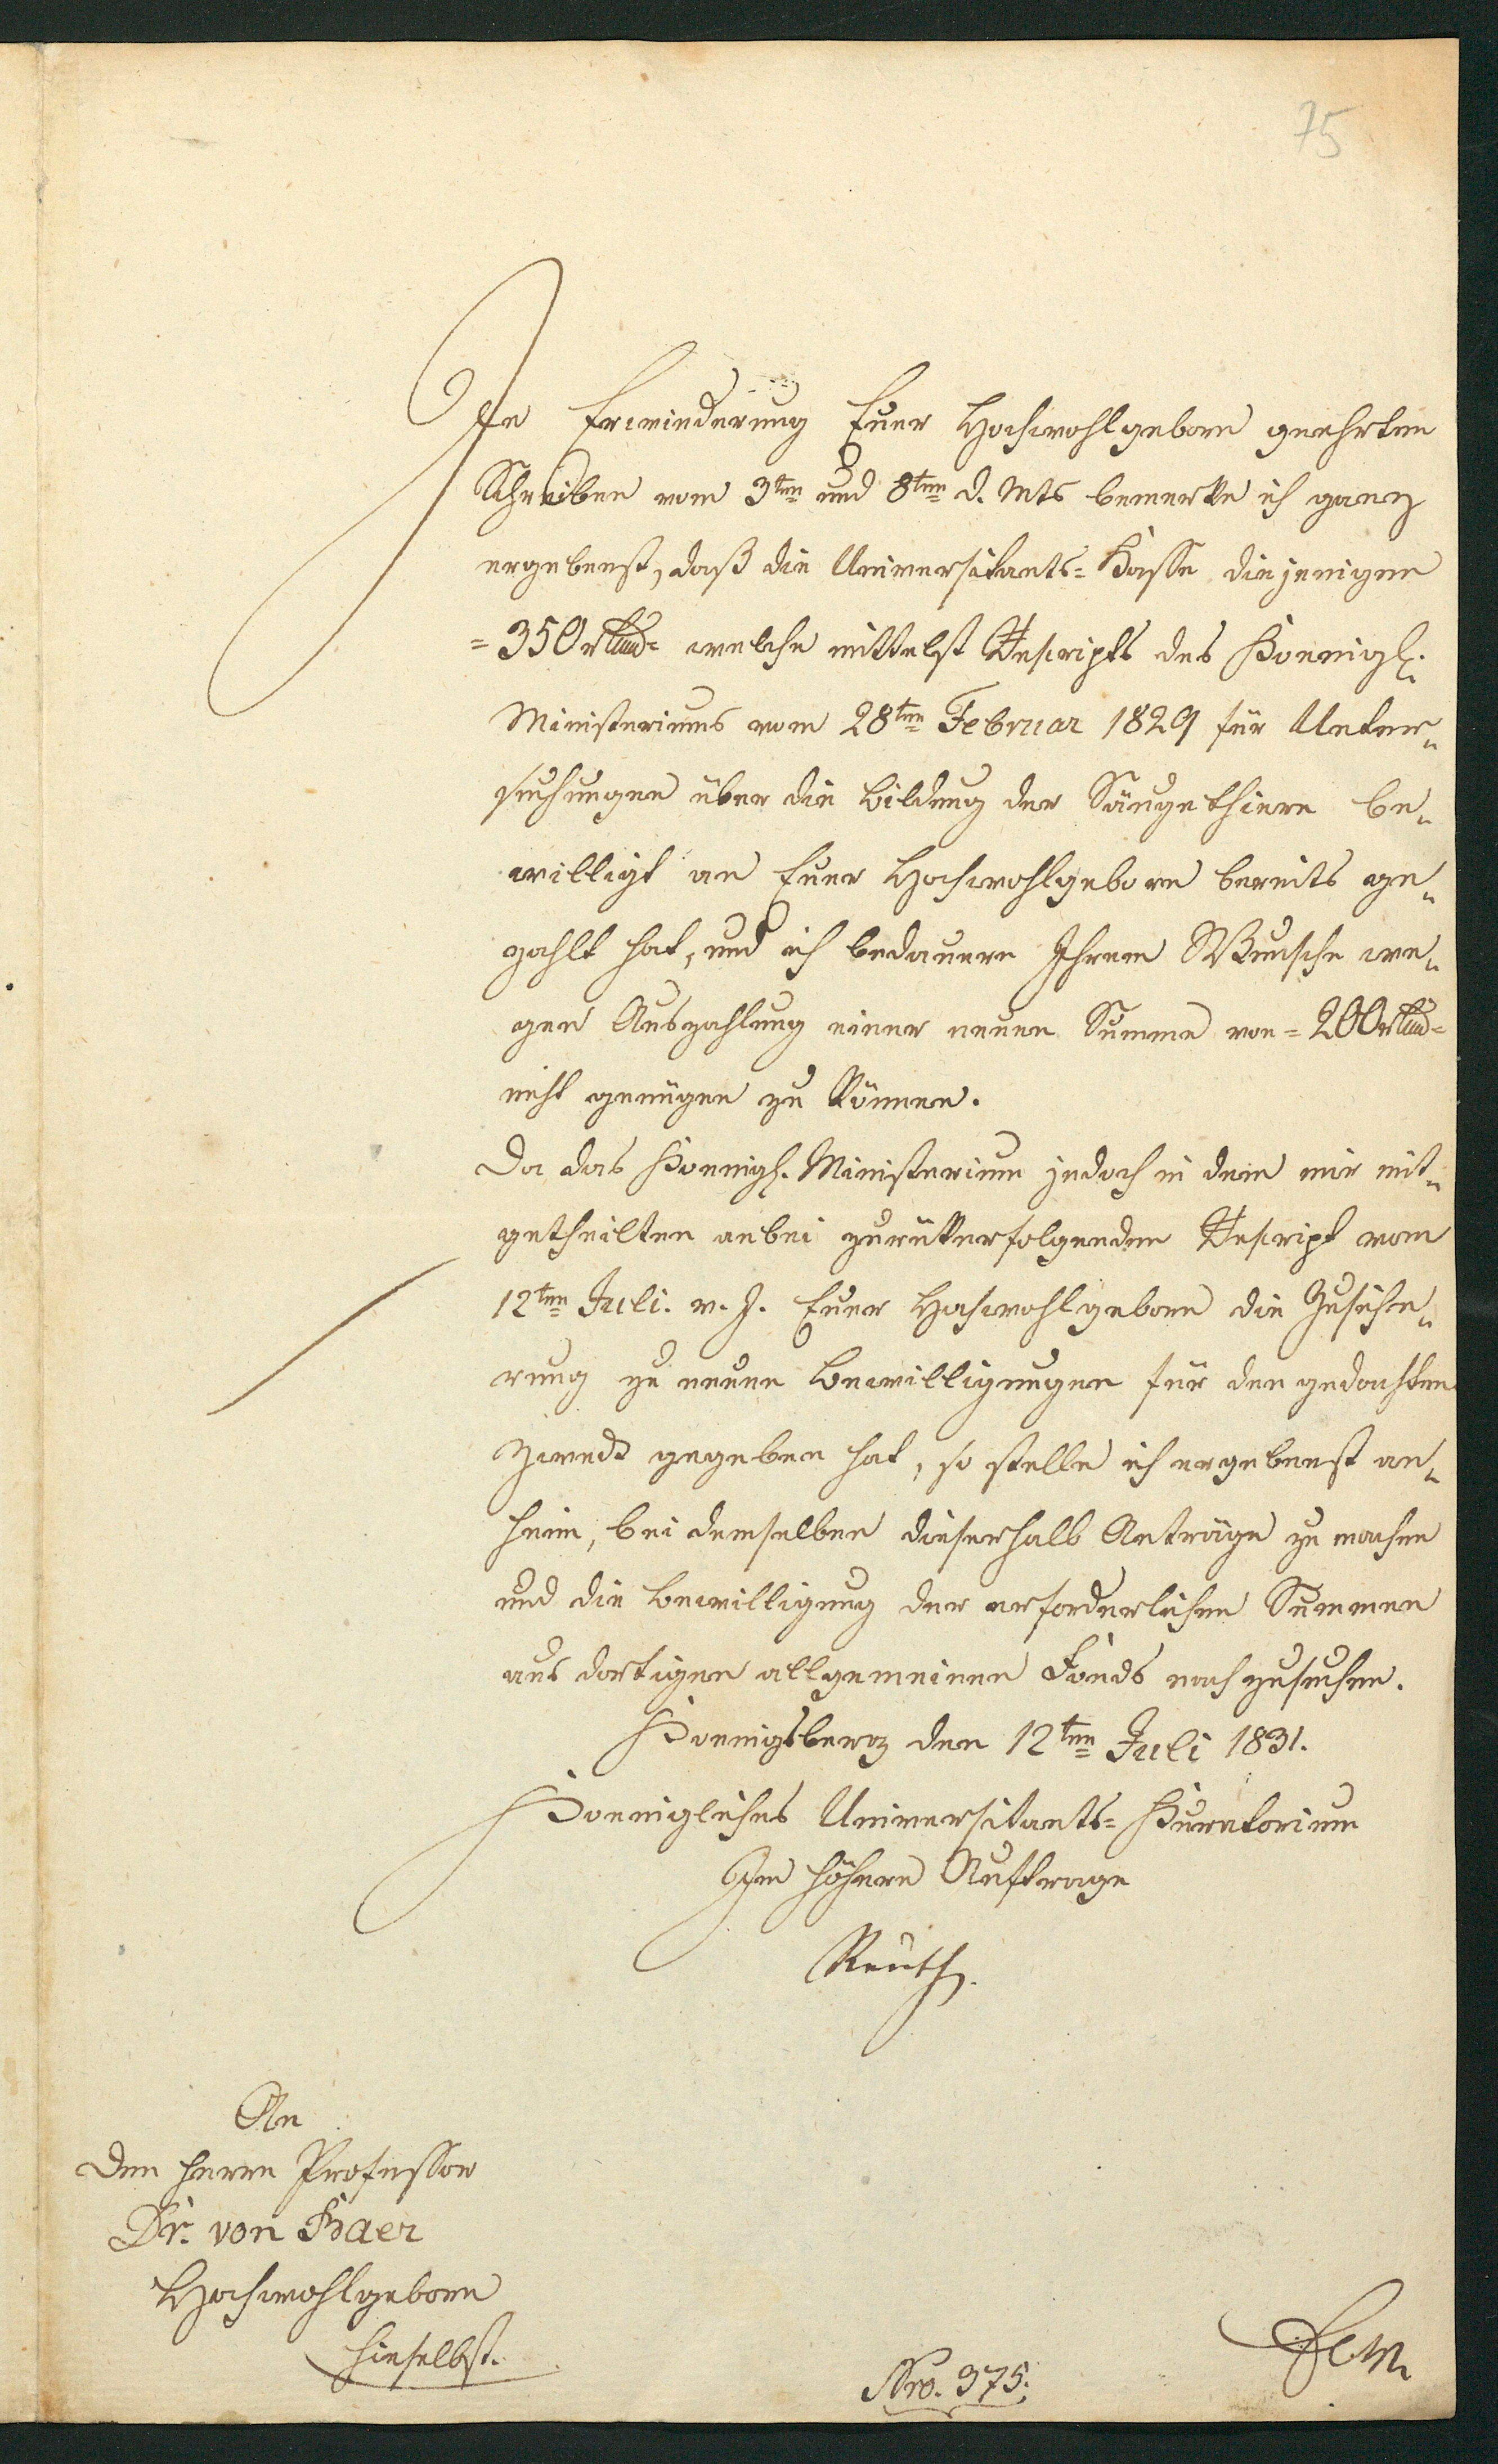 75
In Erwiederung Euer Hochwohlgeborn geehrten
Schreiben vom 3ten und 8ten d. Mts bemerke ich ganz
ergebenst, daß die Universitaets-Kasse diejenigen
=350 rtl= welche mittelst Rescripts des Koenigl.
Ministeriums vom 28ten Februar 1829 für Unter-
suchungen über die Bildung der Säugethiere be-
willigt an Euer Hochwohlgeborn bereits ge-
zahlt hat, und ich bedauere Ihrem Wunsche we-
gen Auszahlung einer neuen Summe von =200 rtl=
nicht genügen zu können.
Da das Koenigl. Ministerium jedoch in dem mir mit-
getheilten anbei zurückerfolgenden Rescript vom
12ten Juli. v. J. Euer Hochwohlgeborn die Zusiche-
rung zu neuen Bewilligungen für den gedachten
Zweck gegeben hat, so stelle ich ergebenst an-
heim, bei demselben dieserhalb Anträge zu machen
und die Bewilligung der erforderlichen Summen
aus dortigen allgemeinen Fonds nachzusuchen.
Koenigsberg den 12ten Juli 1831.
Koenigliches Universitaets-Kuratorium
Im höhern Auftrage
Reusch.
An
den Herrn Professor
Dr. von Baer
Hochwohlgeborn
hieselbst.
Nro. 375.